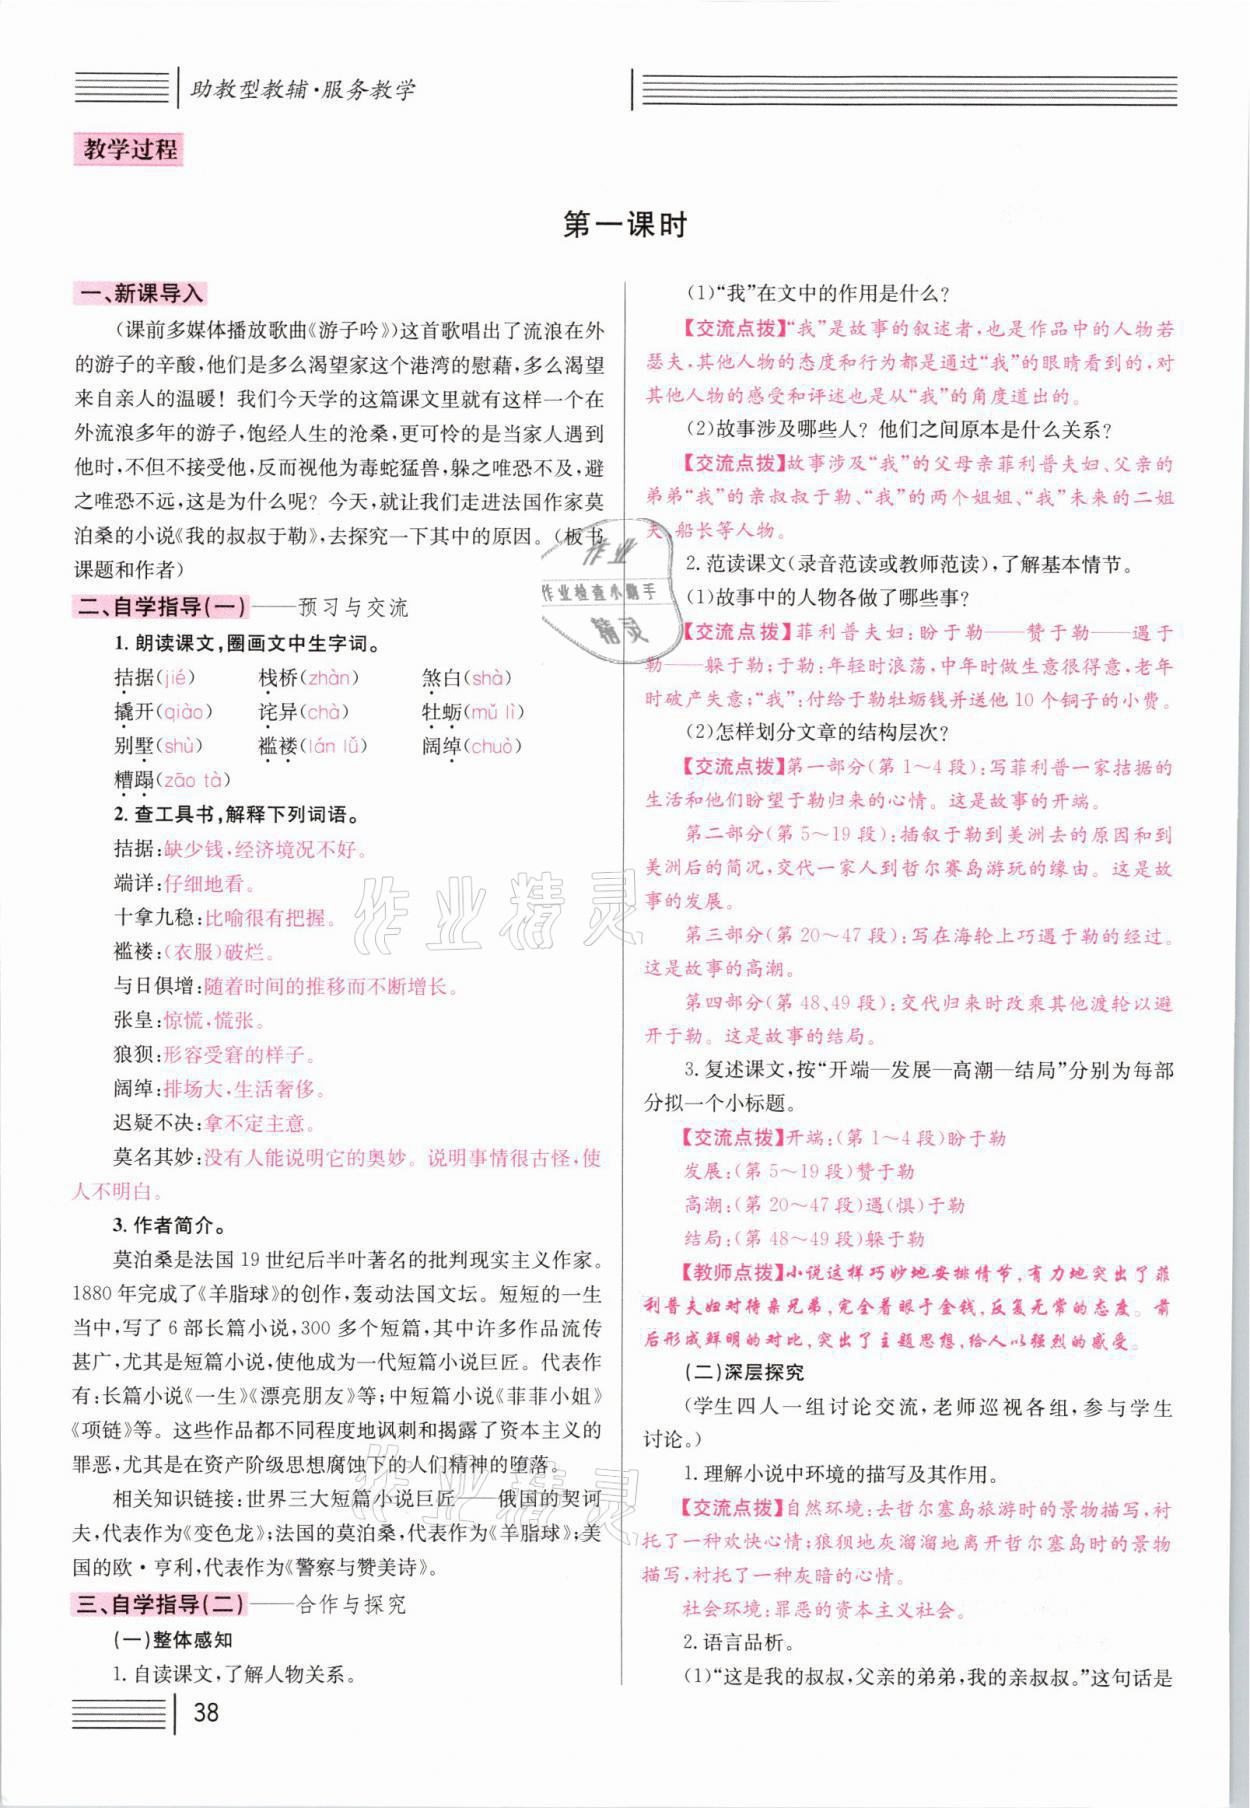 助教型教辅·服务教学
教学过程
第一课时
一、新课导入
(课前多媒体播放歌曲《游子吟》)这首歌唱出了流浪在外
的游子的辛酸,他们是多么渴望家这个港湾的慰藉,多么渴望
来自亲人的温暖！我们今天学的这篇课文里就有这样一个在
外流浪多年的游子,饱经人生的沧桑,更可怜的是当家人遇到
他时,不但不接受他,反而视他为毒蛇猛兽,躲之唯恐不及,避
之唯恐不远,这是为什么呢？今天,就让我们走进法国作家莫
泊桑的小说《我的叔叔于勒》,去探究一下其中的原因。(板书
课题和作者)
二、自学指导(一)——预习与交流
1. 朗读课文,圈画文中生字词。
拮据(jié) 栈桥(zhàn) 煞白(shà)
撬开(qiào) 诧异(chà) 牡蛎(mǔ lì)
别墅(shù) 褴褛(lán lǚ) 阔绰(chuò)
糟蹋(zāo tà)
2. 查工具书,解释下列词语。
拮据:缺少钱,经济境况不好。
端详:仔细地看。
十拿九稳:比喻很有把握。
褴褛:(衣服)破烂。
与日俱增:随着时间的推移而不断增长。
张皇:惊慌,慌张。
狼狈:形容受窘的样子。
阔绰:排场大,生活奢侈。
迟疑不决:拿不定主意。
莫名其妙:没有人能说明它的奥妙。说明事情很古怪,使
人不明白。
3. 作者简介。
莫泊桑是法国 19 世纪后半叶著名的批判现实主义作家。
1880 年完成了《羊脂球》的创作,轰动法国文坛。短短的一生
当中,写了 6 部长篇小说,300 多个短篇,其中许多作品流传
甚广,尤其是短篇小说,使他成为一代短篇小说巨匠。代表作
有:长篇小说《一生》《漂亮朋友》等;中短篇小说《菲菲小姐》
《项链》等。这些作品都不同程度地讽刺和揭露了资本主义的
罪恶,尤其是在资产阶级思想腐蚀下的人们精神的堕落。
相关知识链接:世界三大短篇小说巨匠——俄国的契诃
夫,代表作为《变色龙》;法国的莫泊桑,代表作为《羊脂球》;美
国的欧·亨利,代表作为《警察与赞美诗》。
三、自学指导(二)——合作与探究
(一)整体感知
1. 自读课文,了解人物关系。
(1)“我”在文中的作用是什么?
【交流点拨】“我”是故事的叙述者,也是作品中的人物若
瑟夫,其他人物的态度和行为都是通过“我”的眼睛看到的,对
其他人物的感受和评述也是从“我”的角度道出的。
(2)故事涉及哪些人？他们之间原本是什么关系?
【交流点拨】故事涉及“我”的父母亲菲利普夫妇、父亲的
弟弟“我”的亲叔叔于勒、“我”的两个姐姐、“我”未来的二姐
夫、船长等人物。
2. 范读课文(录音范读或教师范读),了解基本情节。
(1)故事中的人物各做了哪些事?
【交流点拨】菲利普夫妇:盼于勒——赞于勒——遇于
勒——躲于勒;于勒:年轻时浪荡,中年时做生意很得意,老年
时破产失意;“我”:付给于勒牡蛎钱并送他 10 个铜子的小费。
(2)怎样划分文章的结构层次?
【交流点拨】第一部分(第 1～4 段):写菲利普一家拮据的
生活和他们盼望于勒归来的心情。这是故事的开端。
第二部分(第 5～19 段):插叙于勒到美洲去的原因和到
美洲后的简况,交代一家人到哲尔赛岛游玩的缘由。这是故
事的发展。
第三部分(第 20～47 段):写在海轮上巧遇于勒的经过。
这是故事的高潮。
第四部分(第 48、49 段):交代归来时改乘其他渡轮以避
开于勒。这是故事的结局。
3. 复述课文,按“开端—发展—高潮—结局”分别为每部
分拟一个小标题。
【交流点拨】开端:(第 1～4 段)盼于勒
发展:(第 5～19 段)赞于勒
高潮:(第 20～47 段)遇(惧)于勒
结局:(第 48～49 段)躲于勒
【教师点拨】小说这样巧妙地安排情节,有力地突出了菲
利普夫妇对待亲兄弟,完全着眼于金钱,反复无常的态度。前
后形成鲜明的对比,突出了主题思想,给人以强烈的感受。
(二)深层探究
(学生四人一组讨论交流,老师巡视各组,参与学生
讨论。)
1. 理解小说中环境的描写及其作用。
【交流点拨】自然环境:去哲尔塞岛旅游时的景物描写,衬
托了一种欢快心情;狼狈地灰溜溜地离开哲尔塞岛时的景物
描写,衬托了一种灰暗的心情。
社会环境:罪恶的资本主义社会。
2. 语言品析。
(1)“这是我的叔叔,父亲的弟弟,我的亲叔叔。”这句话是
38
作业
作业检查小助手
精灵
作业精灵
作业精灵